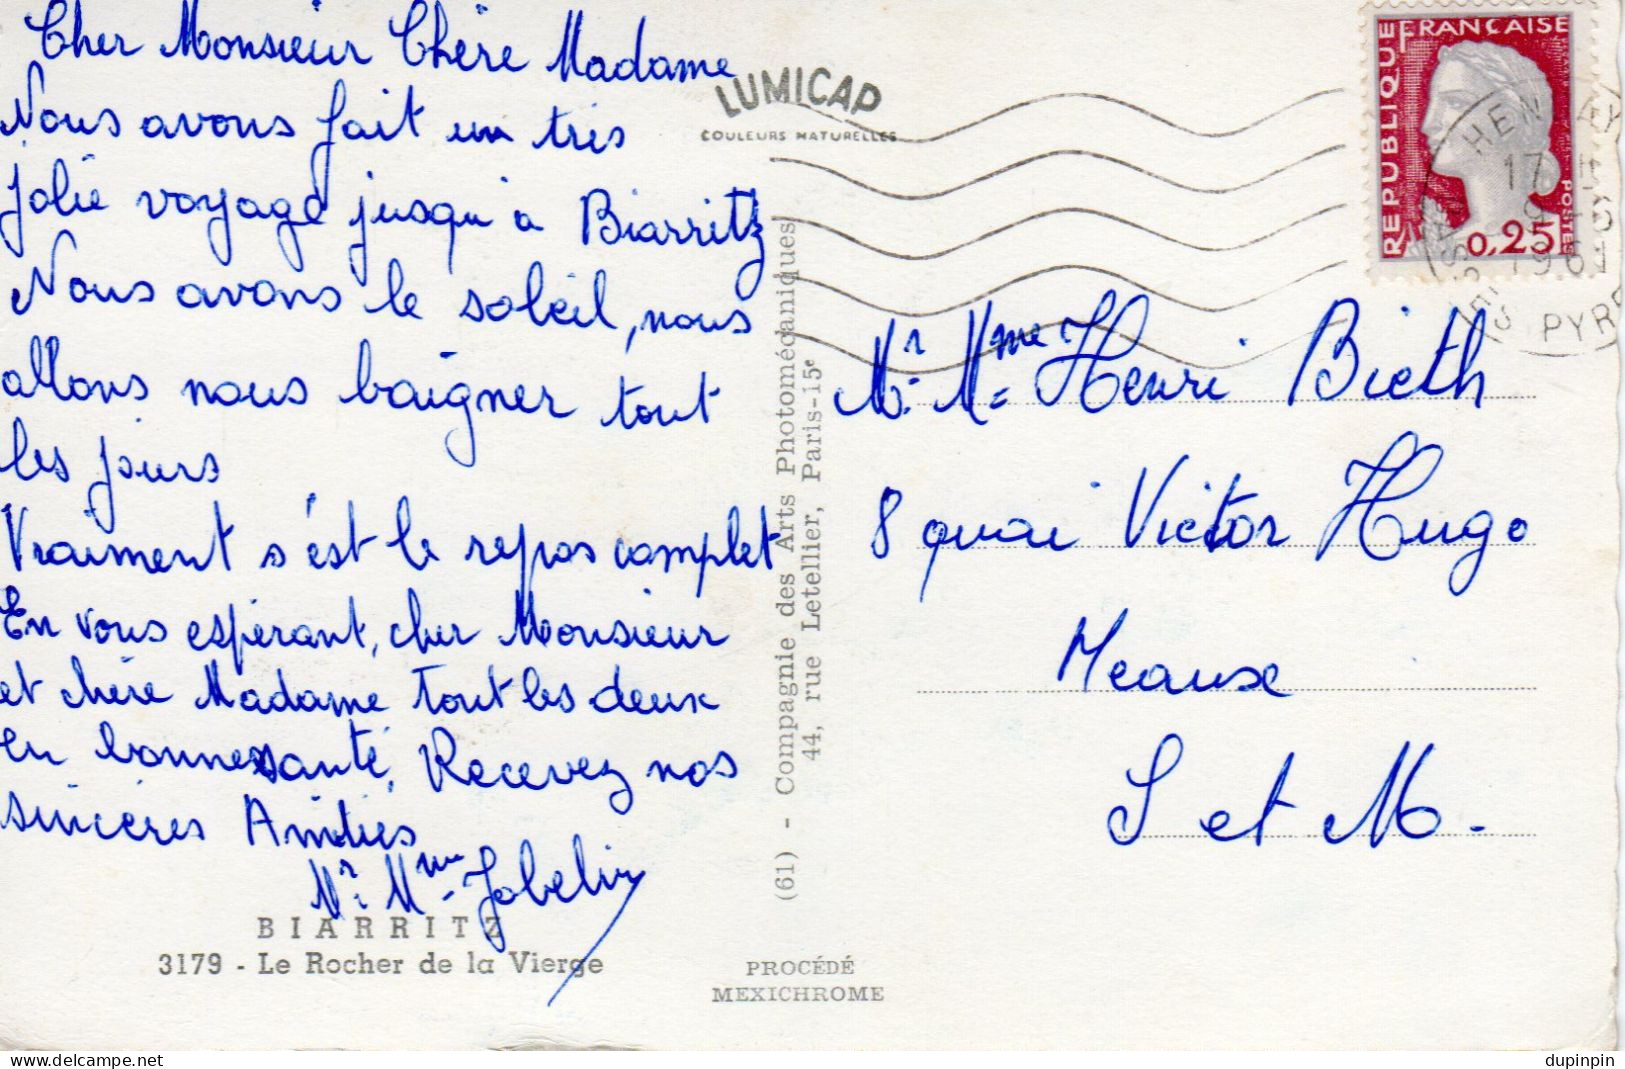 Cher Monsieur Chère Madame
Nous avons fait un très
jolie voyage jusqu'a Biarritz
Nous avons le soleil, nous
allons nous baigner tout
les jours
Vraiment s'est le repos complet
En vous espérant, cher Monsieur
et chère Madame tout les deux
en bonne santé, Recevez nos
sincères Amitiés
Mr. Mme Jobelin
BIARRITZ
3179 - Le Rocher de la Vierge
LUMICAP
COULEURS NATURELLES
(61) - Compagnie des Arts Photomécaniques
44, rue Letellier, Paris-15e
PROCÉDÉ
MEXICHROME
REPUBLIQUE FRANÇAISE
POSTES
0,25
HENDAYE
17
1961
PYR
Mr. Mme Henri Bieth
8 quai Victor Hugo
Meaux
S et M.
delcampe.net
dupinpin